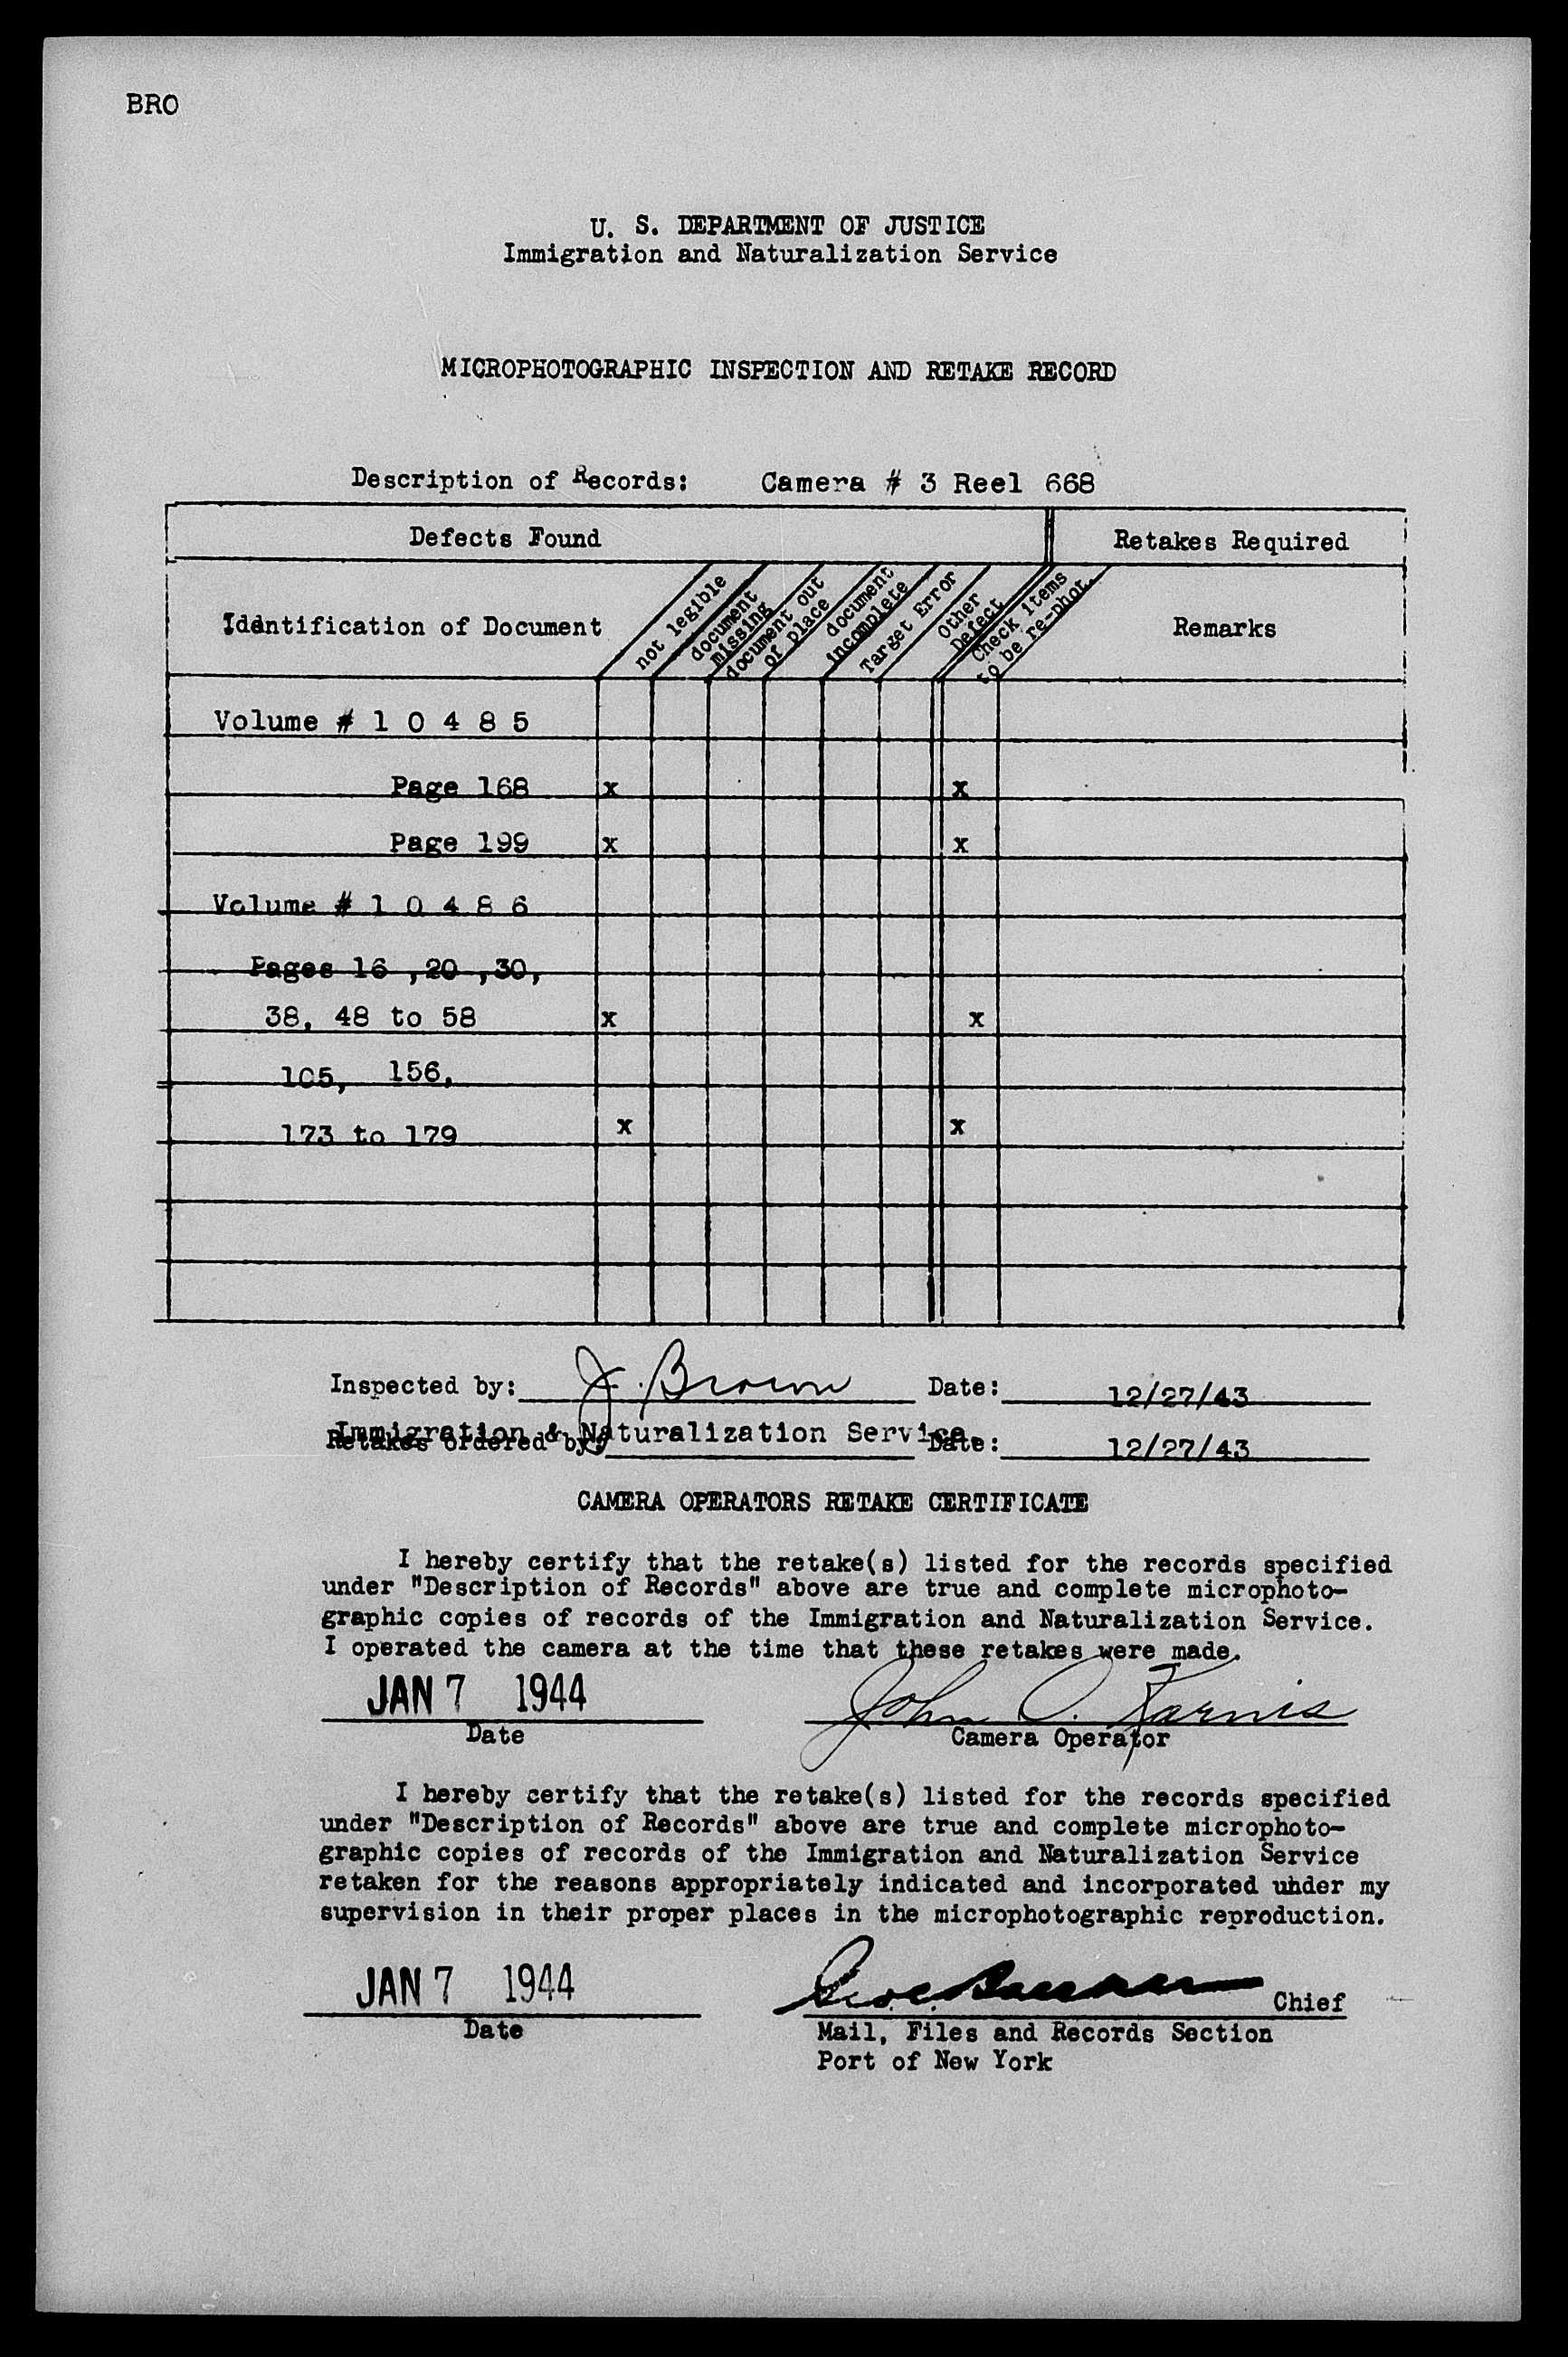 BRO
U. S. DEPARTMENT OF JUSTICE
Immigration and Naturalization Service
MICROPHOTOGRAPHIC INSPECTION AND RETAKE RECORD
Description of Records: Camera # 3 Reel 668
Defects Found
Retakes Required
Identification of Document
not legible
document
missing
document out
of place
document
incomplete
Target Error
Other
Defect
Check items
to be re-phot.
Remarks
Volume # 1 0 4 8 5
Page 168 x x
Page 199 x x
Volume # 1 0 4 8 6
Pages 16 ,20 ,30,
38, 48 to 58 x x
105, 156,
173 to 179 x x
Inspected by: J. Brown Date: 12/27/43
Immigration & Naturalization Service.
Retakes ordered by: Date: 12/27/43
CAMERA OPERATORS RETAKE CERTIFICATE
I hereby certify that the retake(s) listed for the records specified
under "Description of Records" above are true and complete microphoto-
graphic copies of records of the Immigration and Naturalization Service.
I operated the camera at the time that these retakes were made.
JAN 7 1944 John O. Karnis
Date Camera Operator
I hereby certify that the retake(s) listed for the records specified
under "Description of Records" above are true and complete microphoto-
graphic copies of records of the Immigration and Naturalization Service
retaken for the reasons appropriately indicated and incorporated under my
supervision in their proper places in the microphotographic reproduction.
JAN 7 1944 Chief
Date Mail, Files and Records Section
Port of New York